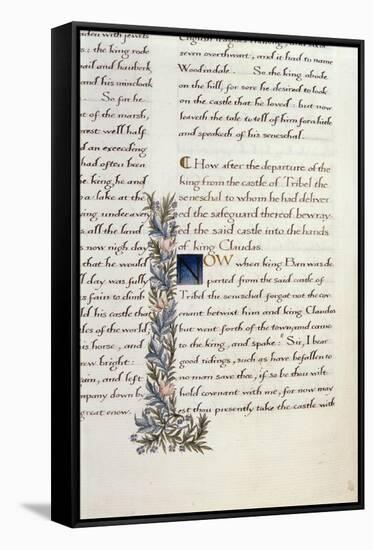 den with jewels
s: the king rode
ail and hauberk
and his minchak
So far he
t of the marsh,
rest well half
d an exceeding
had often been
e king, he and
a lake at the
ing undeeaven
all the lands
now nigh day
that he would
l day was full
s fain to climb
ld his castle that
lds of another
is horse, and
ew bright:
ain, and let
mpany down by
great enow.
seven overthwart, and it had to name
Woodindale. So the king abode
on the hill, for sore he desired to look
on the castle that he loved: but now
leaveth the tale to tell of him for a little
and speaketh of his seneschal.
How after the departure of the
king from the castle of Tribel the
seneschal to whom he had deliver
ed the safeguard thereof bewray
ed the said castle into the hands
of king Claudas.
NOW when king Ban was de
parted from the said castle of
Tribel the seneschal forgat not the cov
enant betwixt him and king Claudas
but went forth of the town, and came
to the king, and spake: "Sir, I bear
good tidings, such as have befallen to
no man save thee, if so be thou wilt
hold covenant with me, for now may
est thou presently take the castle with